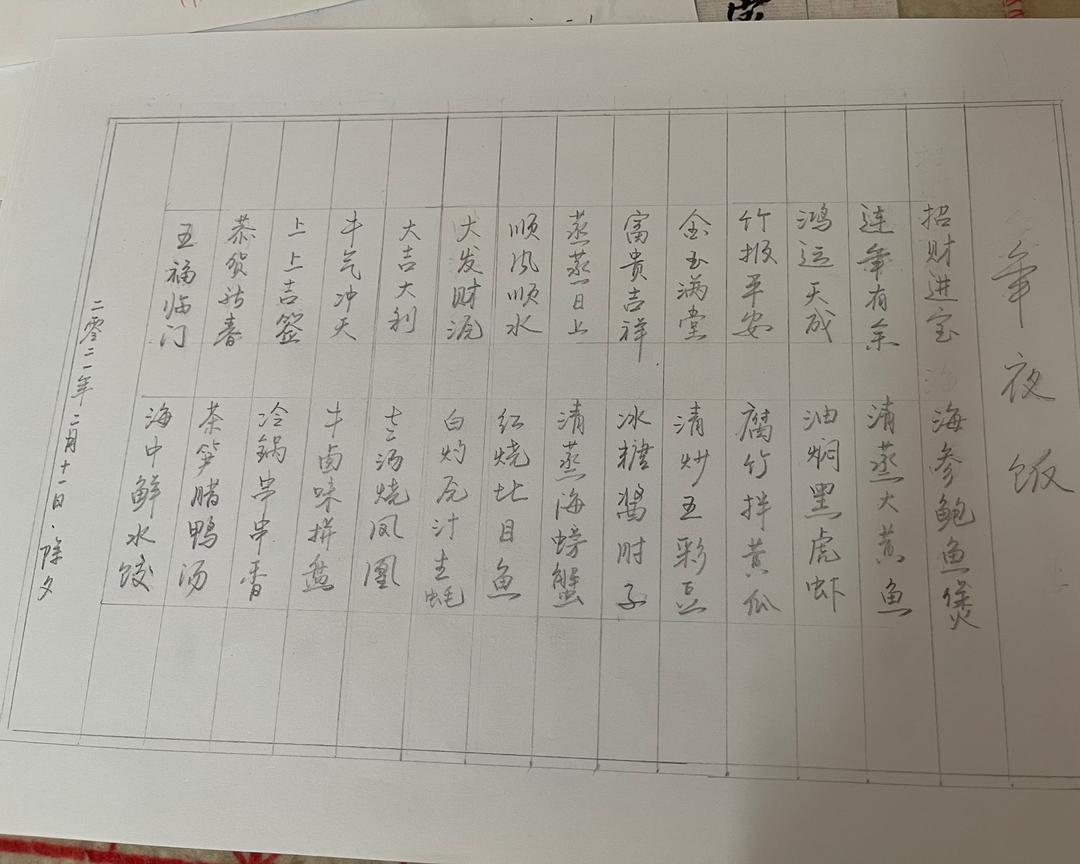 年夜饭
招财进宝 海参鲍鱼煲
连年有余 清蒸大黄鱼
鸿运天成 油焖黑虎虾
竹报平安 腐竹拌黄瓜
金玉满堂 清炒五彩豆
富贵吉祥 冰糖酱肘子
蒸蒸日上 清蒸海螃蟹
顺风顺水 红烧比目鱼
大发财源 白灼瓦汁生蚝
大吉大利 汤烧凤凰
牛气冲天 牛卤味拼盘
上上吉签 冷锅串串香
恭贺新春 茶笋腊鸭汤
五福临门 海中鲜水饺
二零二一年二月十一日·除夕